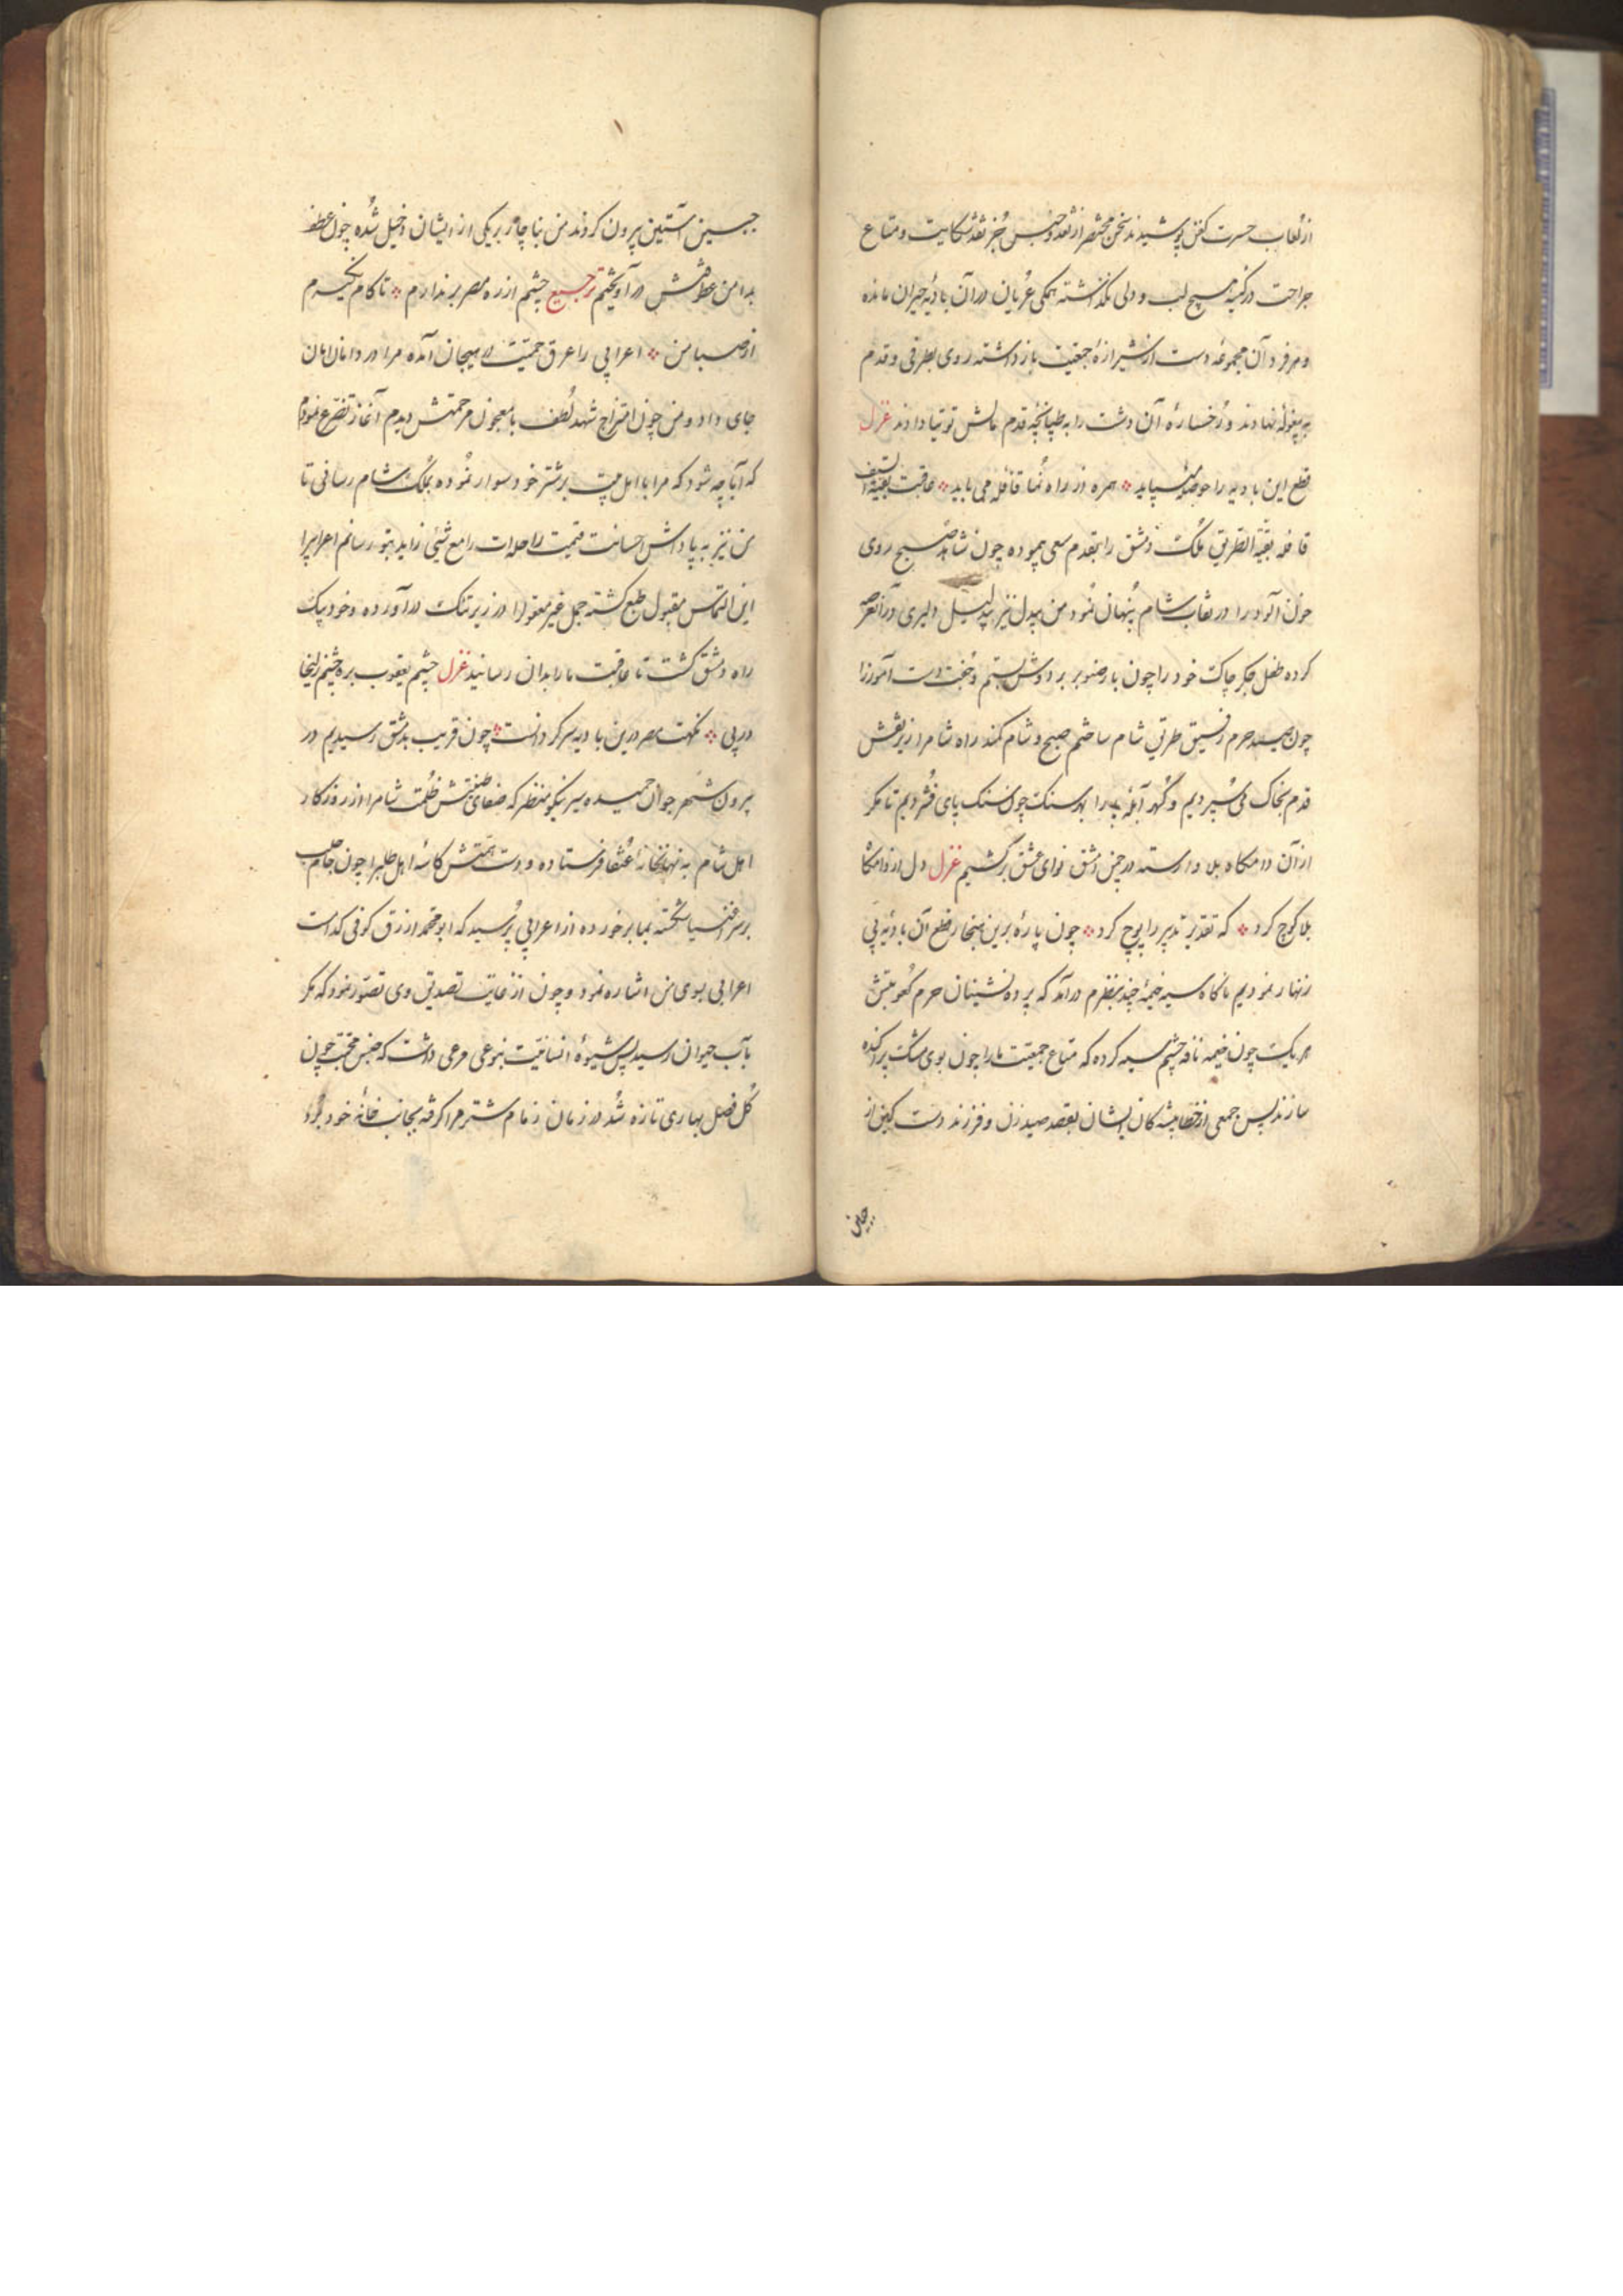 از نقاب حسرت کفن پوشیدند سخن مختصر از نقد و جنس جز نقد شکایت و متاع
جراحت در کیسه هیچ لب و دلی نگذاشته همگی عریان در آن بادیه حیران مانده
و هر فرد آن مجموعه دست از شیرازهٔ جمعیت باز داشته روی بطرفی و قدم
به بیغوله نهادند و رخسارهٔ آن دشت را به طپانچهٔ قدم مالش توتیا دادند غزل
قطع این بادیه را حوصلهٔ میباید ٭ همره از راه نما قافله می باید ٭ عاقبت بقیة السیف
قافله بقیة الطریق ملک دمشق را بقدم سعی پیموده چون شاهد صبح روی
خون آلود را در نقاب شام پنهان نمود من بیدل نیز بدلیل دلیری در آن عرصه
کرده طفل جگر چاک خود را چون بار صنوبر بر دوش بستم و جفت دست آموز را
چون صید حرم رفیق طریق شام ساختم صبح و شام کمند راه شام را زیر نقش
قدم بخاک می سپردیم و گهر آبلهٔ پا را بهر سنک چون سنک پای فشردیم تا مکر
از آن دامکاه بلا وارسته در چمن دمشق نوای عشق برکشیم غزل دل از دامکاه
بلا کوچ کرد ٭ که تقدیر تدبیر را پوچ کرد ٭ چون پارهٔ برین هنجار قطع آن بادیهٔ بی
زنهار نمودیم ناکاه سیه خیمهٔ چند بنظرم درآمد که پرده نشینان حرم کعوبتش
هر یک چون خیمه نافه چشم سیه کرده که متاع جمعیت ما را چون بوی مشک پراکنده
سازند پس جمعی از خطا پیشه کان ایشان بقصد صید زن و فرزند دست کین از
چین
جبین آستین بیرون کردند من بناچار بر یکی از ایشان دخیل شده چون عطف
بدامن عطوفتش درآویختم ترجیع چشم از ره مصر برندارم ٭ تا کام نکیرم
از صبا من ٭ اعرابی را عرق حمیت به هیجان آمده مرا در دامان امان
جای داد و من چون امتزاج شهد لطف با معجون مرحمتش دیدم آغاز تضرع نمودم
که آیا چه شود که مرا با اهل بیت بر شتر خود سوار نموده بملک شام رسانی تا
من نیز به پاداش احسانت قیمت راحله‌ات را مع شیئی زاید بتو رسانم اعرابی را
این التماس مقبول طبع کشته جمل غیر معقول را در زیر تنک درآورده و خود پیک
راه دمشق کشت تا عاقبت ما را بدان رسانید غزل چشم یعقوب بره چشم زلیخا
در پی ٭ نکهت مصر درین بادیه سر کردانست ٭ چون قریب بدمشق رسیدیم در
بیرون شهر جوان حمیده سیر نیکو منظر که صفای طینتش ظلمت شام را از روزکار
اهل شام به نهانخانهٔ عنقا فرستاده و دست همتش کاسهٔ اهل طلب را چون جام حلب
بر سر افنسیا شخته بما برخورده از اعرابی پرسید که ابو محمد ازرق کوفی کداست
اعرابی بسوی من اشاره نمود و چون از غایت تصدیق وی تصور نمود که مکر
بآب حیوان رسید پس شیوهٔ انسانیت بنوعی مرعی داشت که جنس محبت چون
کل فصل بهاری تازه شد در زمان زمام شتر مرا کرفته بجانب خانه خود برد